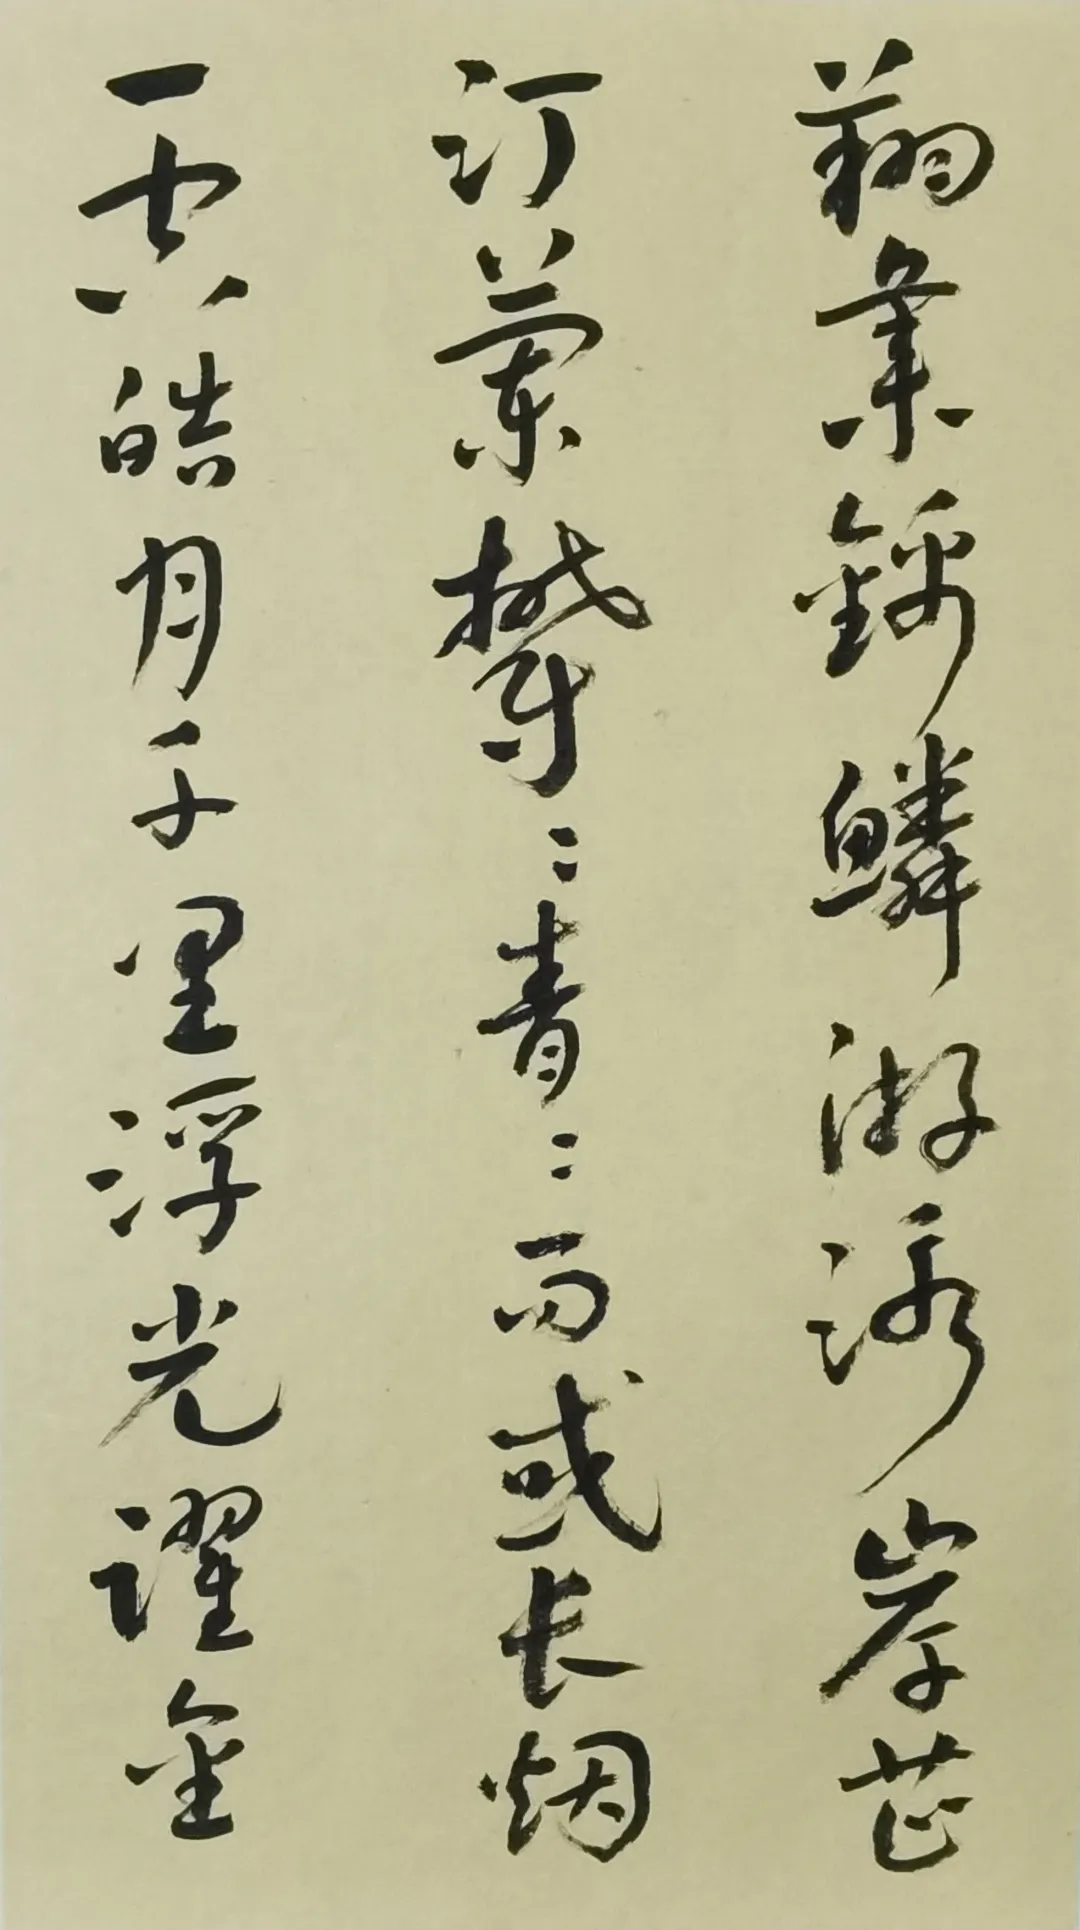 翔集錦鱗游泳岸芷
汀蘭鬱〻青〻而或长烟
一空皓月千里浮光躍金